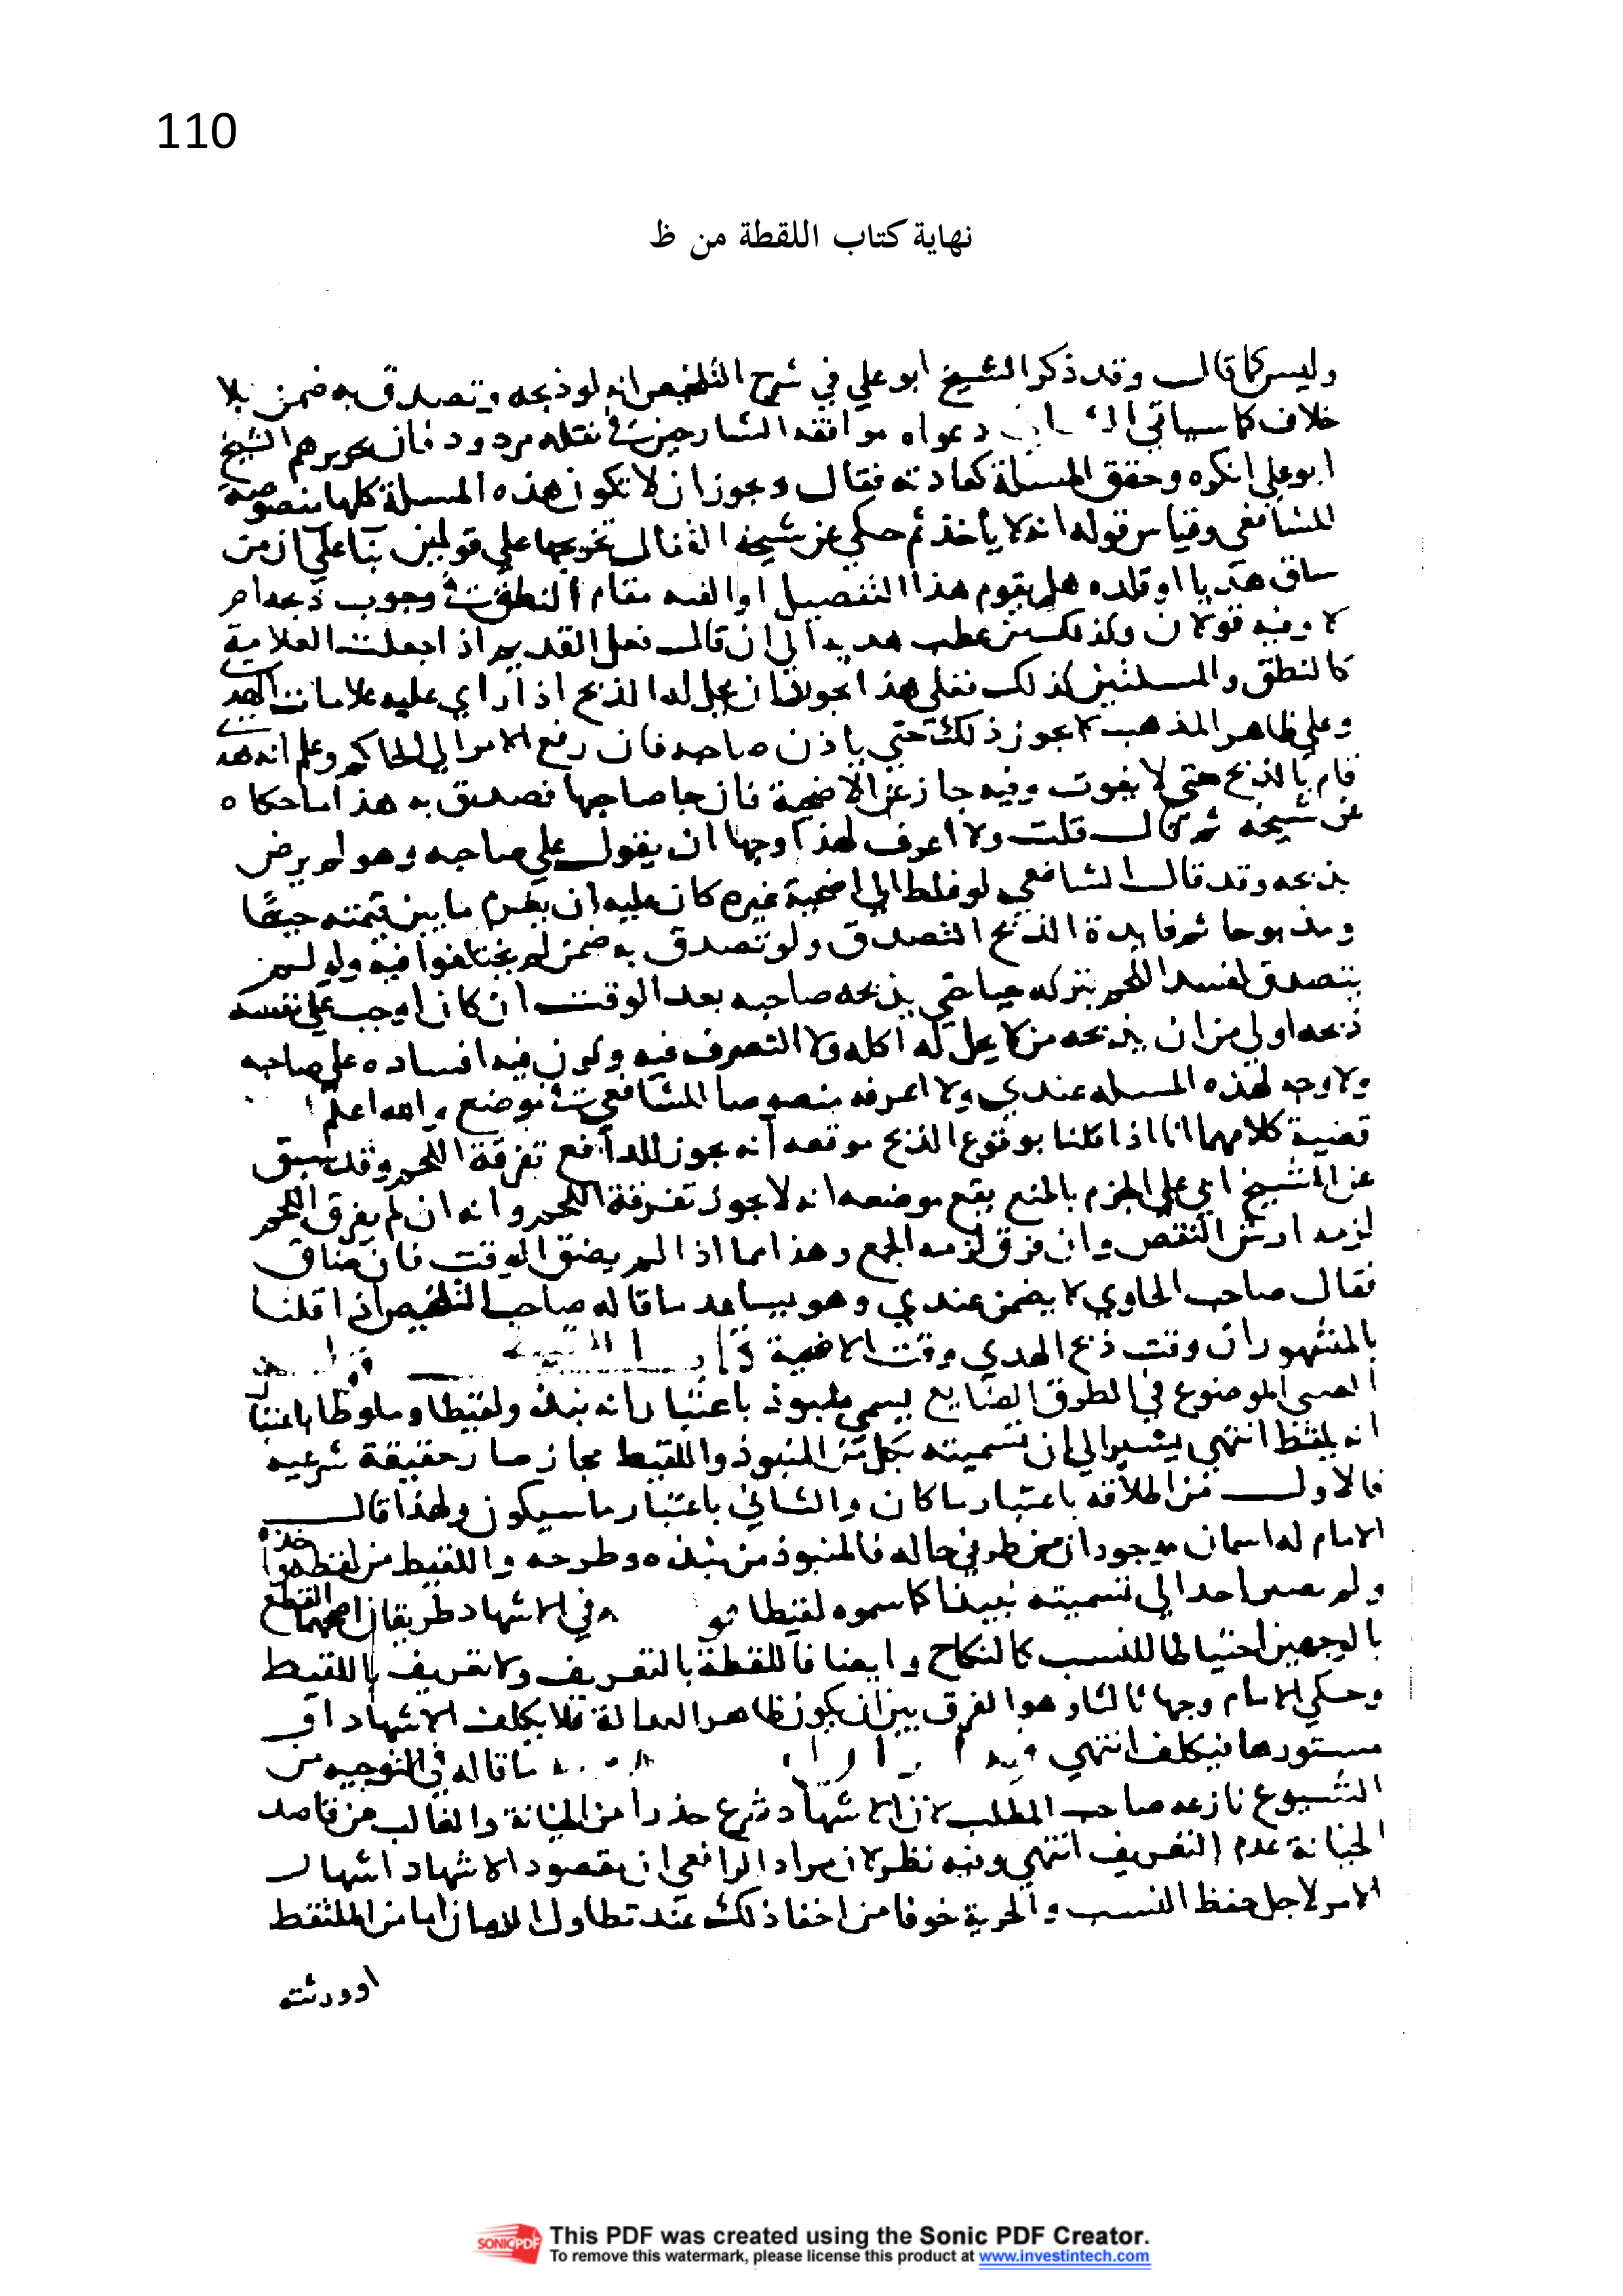 110
نهاية كتاب اللقطة من ظ
وليس كما قال وقد ذكر الشيخ ابو علي في شرح التلخيص انه لو ذبحه وتصدق به ضمن بلا
خلاف كما سياتي دعواه موافقه الشارحين في نقله مردود فان كبيرهم الشيخ
ابو علي انكره وحقق المسلة كعادته فقال ويجوز ان لا تكون هذه المسلة كلها منصوصة
للشافعي وقياس قوله انه لا يأخذ ثم حكي عن شيخه القفال تخريجها علي قولين بنا علي ان من
ساق هديا او قلده هل يقوم هذا مقام النطق في وجوب ذبحه ام
لا وفيه قولان وكذلك من عطب هديه الي ان قال فعلي القديم اذا جعلت العلامة
كالنطق والمسلتين كذلك فعلي هذا يحل له الذبح اذا راي عليه علامات الهدي
وعلي ظاهر المذهب لا يجوز ذلك حتي ياذن صاحبه فان رفع الامر الي الحاكم وعلم انه هدي
قام بالذبح حتي لا يفوت وفيه جاز عن الاضحية فان جا صاحبها تصدق به هذا ما حكاه
عن شيخه ثم قال قلت ولا اعرف لهذا وجها ان يفوت علي صاحبه وهو لم يرض
بذبحه وقد قال الشافعي لو غلط الي اضحية غيره كان عليه ان يغرم ما بين قيمته حيا
ومذبوحا ثم فايدة الذبح التصدق ولو تصدق به ضمن لم يختلفوا فيه ولو لم
يتصدق لفسد اللحم بتركه حيا حتي يذبحه صاحبه بعد الوقت ان كان اوجب علي نفسه
ذبحه اولي من ان يذبحه من لا يحل له اكله ولا التصرف فيه ويكون فيه افساده علي صاحبه
ولا وجه لهذه المسله عندي ولا اعرفه منصوصا للشافعي في موضع والله اعلم
قضية كلامهما انا اذا قلنا بوقوع الذبح موقعه انه يجوز للدافع تفرقة اللحم وقد سبق
عن الشيخ ابي علي الجزم بالمنع يقع موضعه انه لا يجوز تفرقة اللحم وانه ان لم يفرق اللحم
لزمه ارش النقص وان فرق لزمه الجمع وهذا ما اذا لم يضق الوقت فان ضاق
فقال صاحب الحاوي لا يضمن عندي وهو يساعد ما قاله صاحب التلخيص اذا قلنا
بالمشهور ان وقت ذبح الهدي وقت الاضحية
الصبي الموضوع في الطرق الضايع يسمي منبوذ باعتبار انه نبذ ولقيطا وملقوطا باعتبار
انه يلتقط انتهي يشير الي ان تسميته بكل من المنبوذ واللقيط مجاز صار حقيقة شرعيه
فالاول من اطلاقه باعتبار ما كان والثاني باعتبار ما سيكون ولهذا قال
الامام له اسمان في حاله فالمنبوذ من نبذه وطرحه واللقيط من لقطه واخذه
ولم يصر احد الي تسميته نبيذا كما سموه لقيطا في الاشهاد طريقان اصحهما القطع
بالوجهين احتياطا للنسب كالنكاح وايضا فاللقطة بالتعريف ولا تعريف باللقيط
وحكي الامام وجها ثالثا وهو الفرق بين ان يكون ظاهر العدالة فلا يكلف الاشهاد او
مستورها فيكلف انتهي ما قاله في التوجيه من
الشيوع نازعه صاحب المطلب لان الاشهاد شرع حذرا من الخيانة والغالب من قاصد
الخيانة عدم التعريف انتهي وفيه نظر لان مراد الرافعي ان مقصود الاشهاد اشهار
الامر لاجل حفظ النسب والحرية خوفا من اخفا ذلك عند تطاول الازمان اما من الملتقط
او ورثته
SONICPDF
This PDF was created using the Sonic PDF Creator.
To remove this watermark, please license this product at www.investintech.com